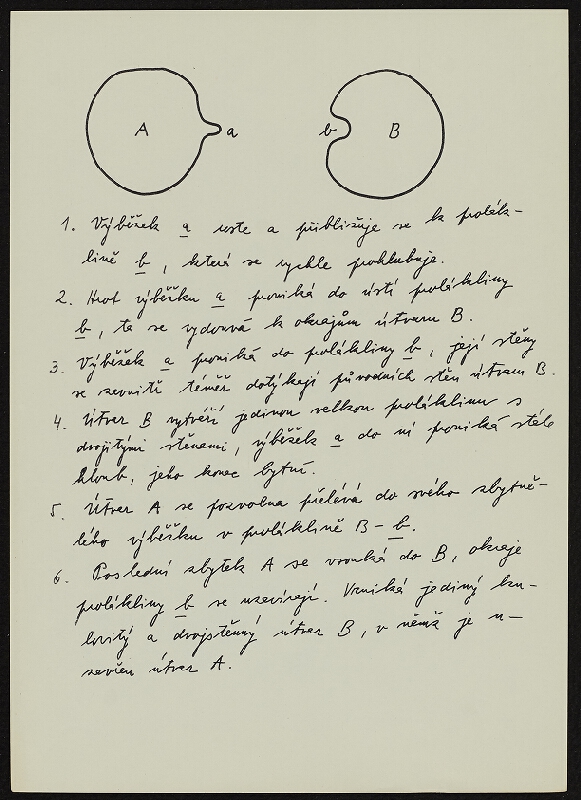 A a b B
1. Výběžek a roste a přibližuje se k prolák-
lině b, která se rychle prohlubuje.
2. Hrot výběžku a proniká do ústí proláklíny
b, ta se vydouvá k okrajům útvaru B.
3. Výběžek a proniká do proláklíny b, její stěny
se zevnitř téměř dotýkají původních stěn útvaru B.
4. Útvar B vytváří jedinou velkou proláklinu s
dvojitými stěnami, výběžek a do ní proniká stále
hloub, jeho konec bytní.
5. Útvar A se pozvolna přelévá do svého zbytně-
lého výběžku v proláklině B – b.
6. Poslední zbytek A se vsouká do B, okraje
prolákliny b se uzavírají. Vzniká jediný ku-
lovitý a dvojstěnný útvar B, v němž je u-
zavřen útvar A.